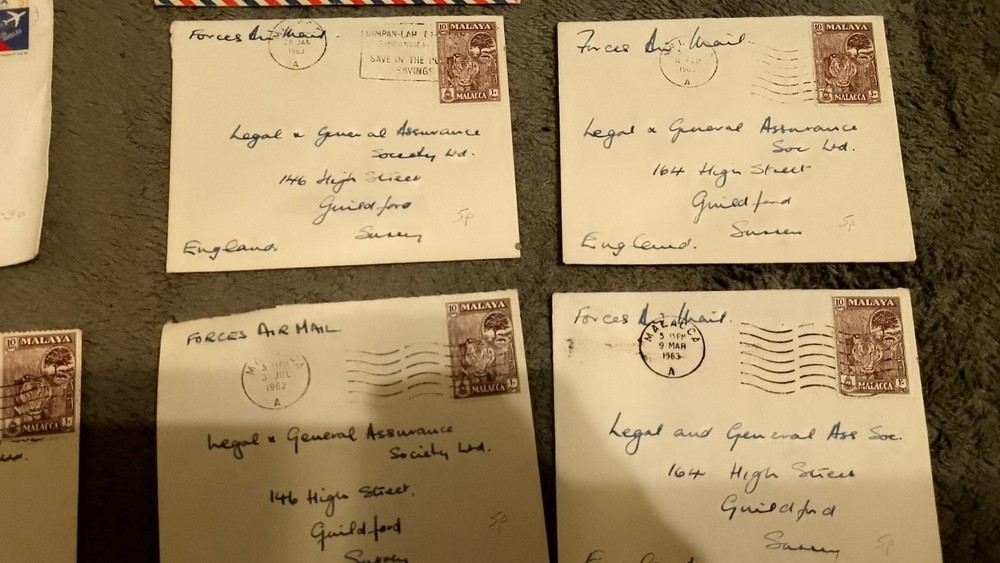 Forces Air Mail.
28 JAN
1963
A
SIMPAN-LAH
SAVE IN THE
SAVINGS
10 MALAYA
MALACCA
Legal & General Assurance
Society Ltd.
146 High Street
Guildford
Surrey
England.
5p
Forces Air Mail
1963
A
10 MALAYA
MALACCA
Legal & General Assurance
Soc Ltd.
164 High Street
Guildford
Surrey
England.
5p
10 MALAYA
MALACCA
FORCES AIR MAIL
3 JUL
1962
A
10 MALAYA
MALACCA
Legal & General Assurance
Society Ltd.
146 High Street.
Guildford
Surrey
5p
Forces Air Mail.
MALACCA
3 15PM
9 MAR
1963
A
10 MALAYA
MALACCA
Legal and General Ass Soc.
164 High Street
Guildford
Surrey
England
5p